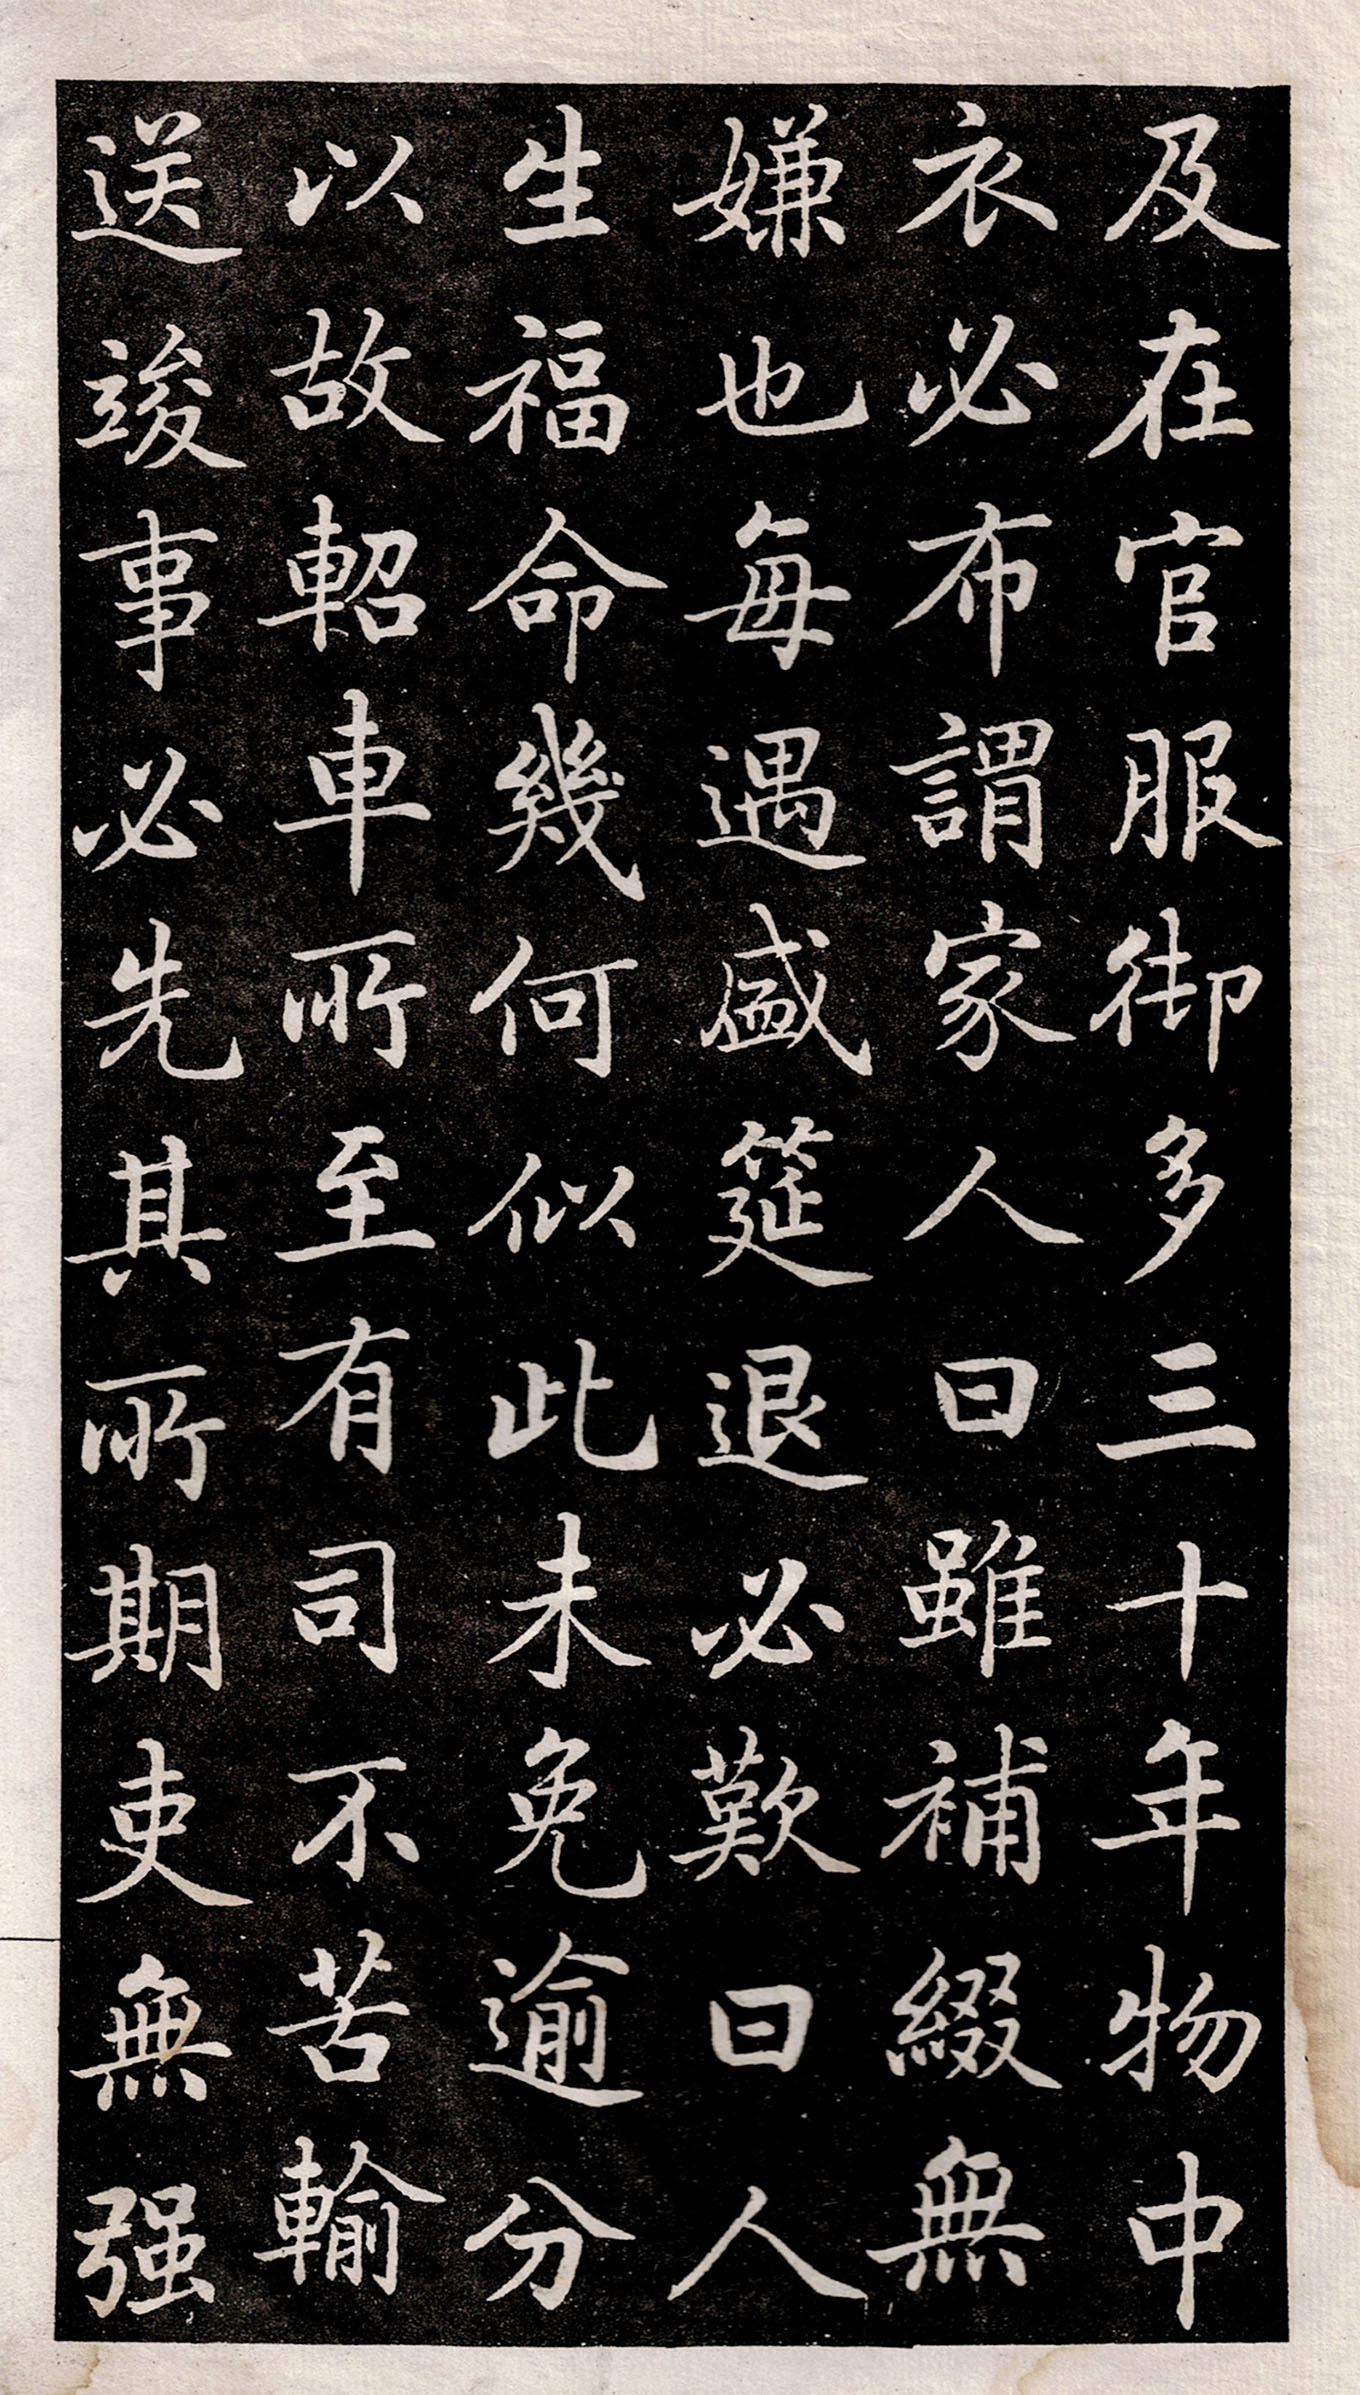 及在官服御多三十年物中
衣必布謂家人曰雖補綴無
嫌也每遇盛筵退必歎曰人
生福命幾何似此未免逾分
以故軺車所至有司不苦輸
送竣事必先其所期吏無强